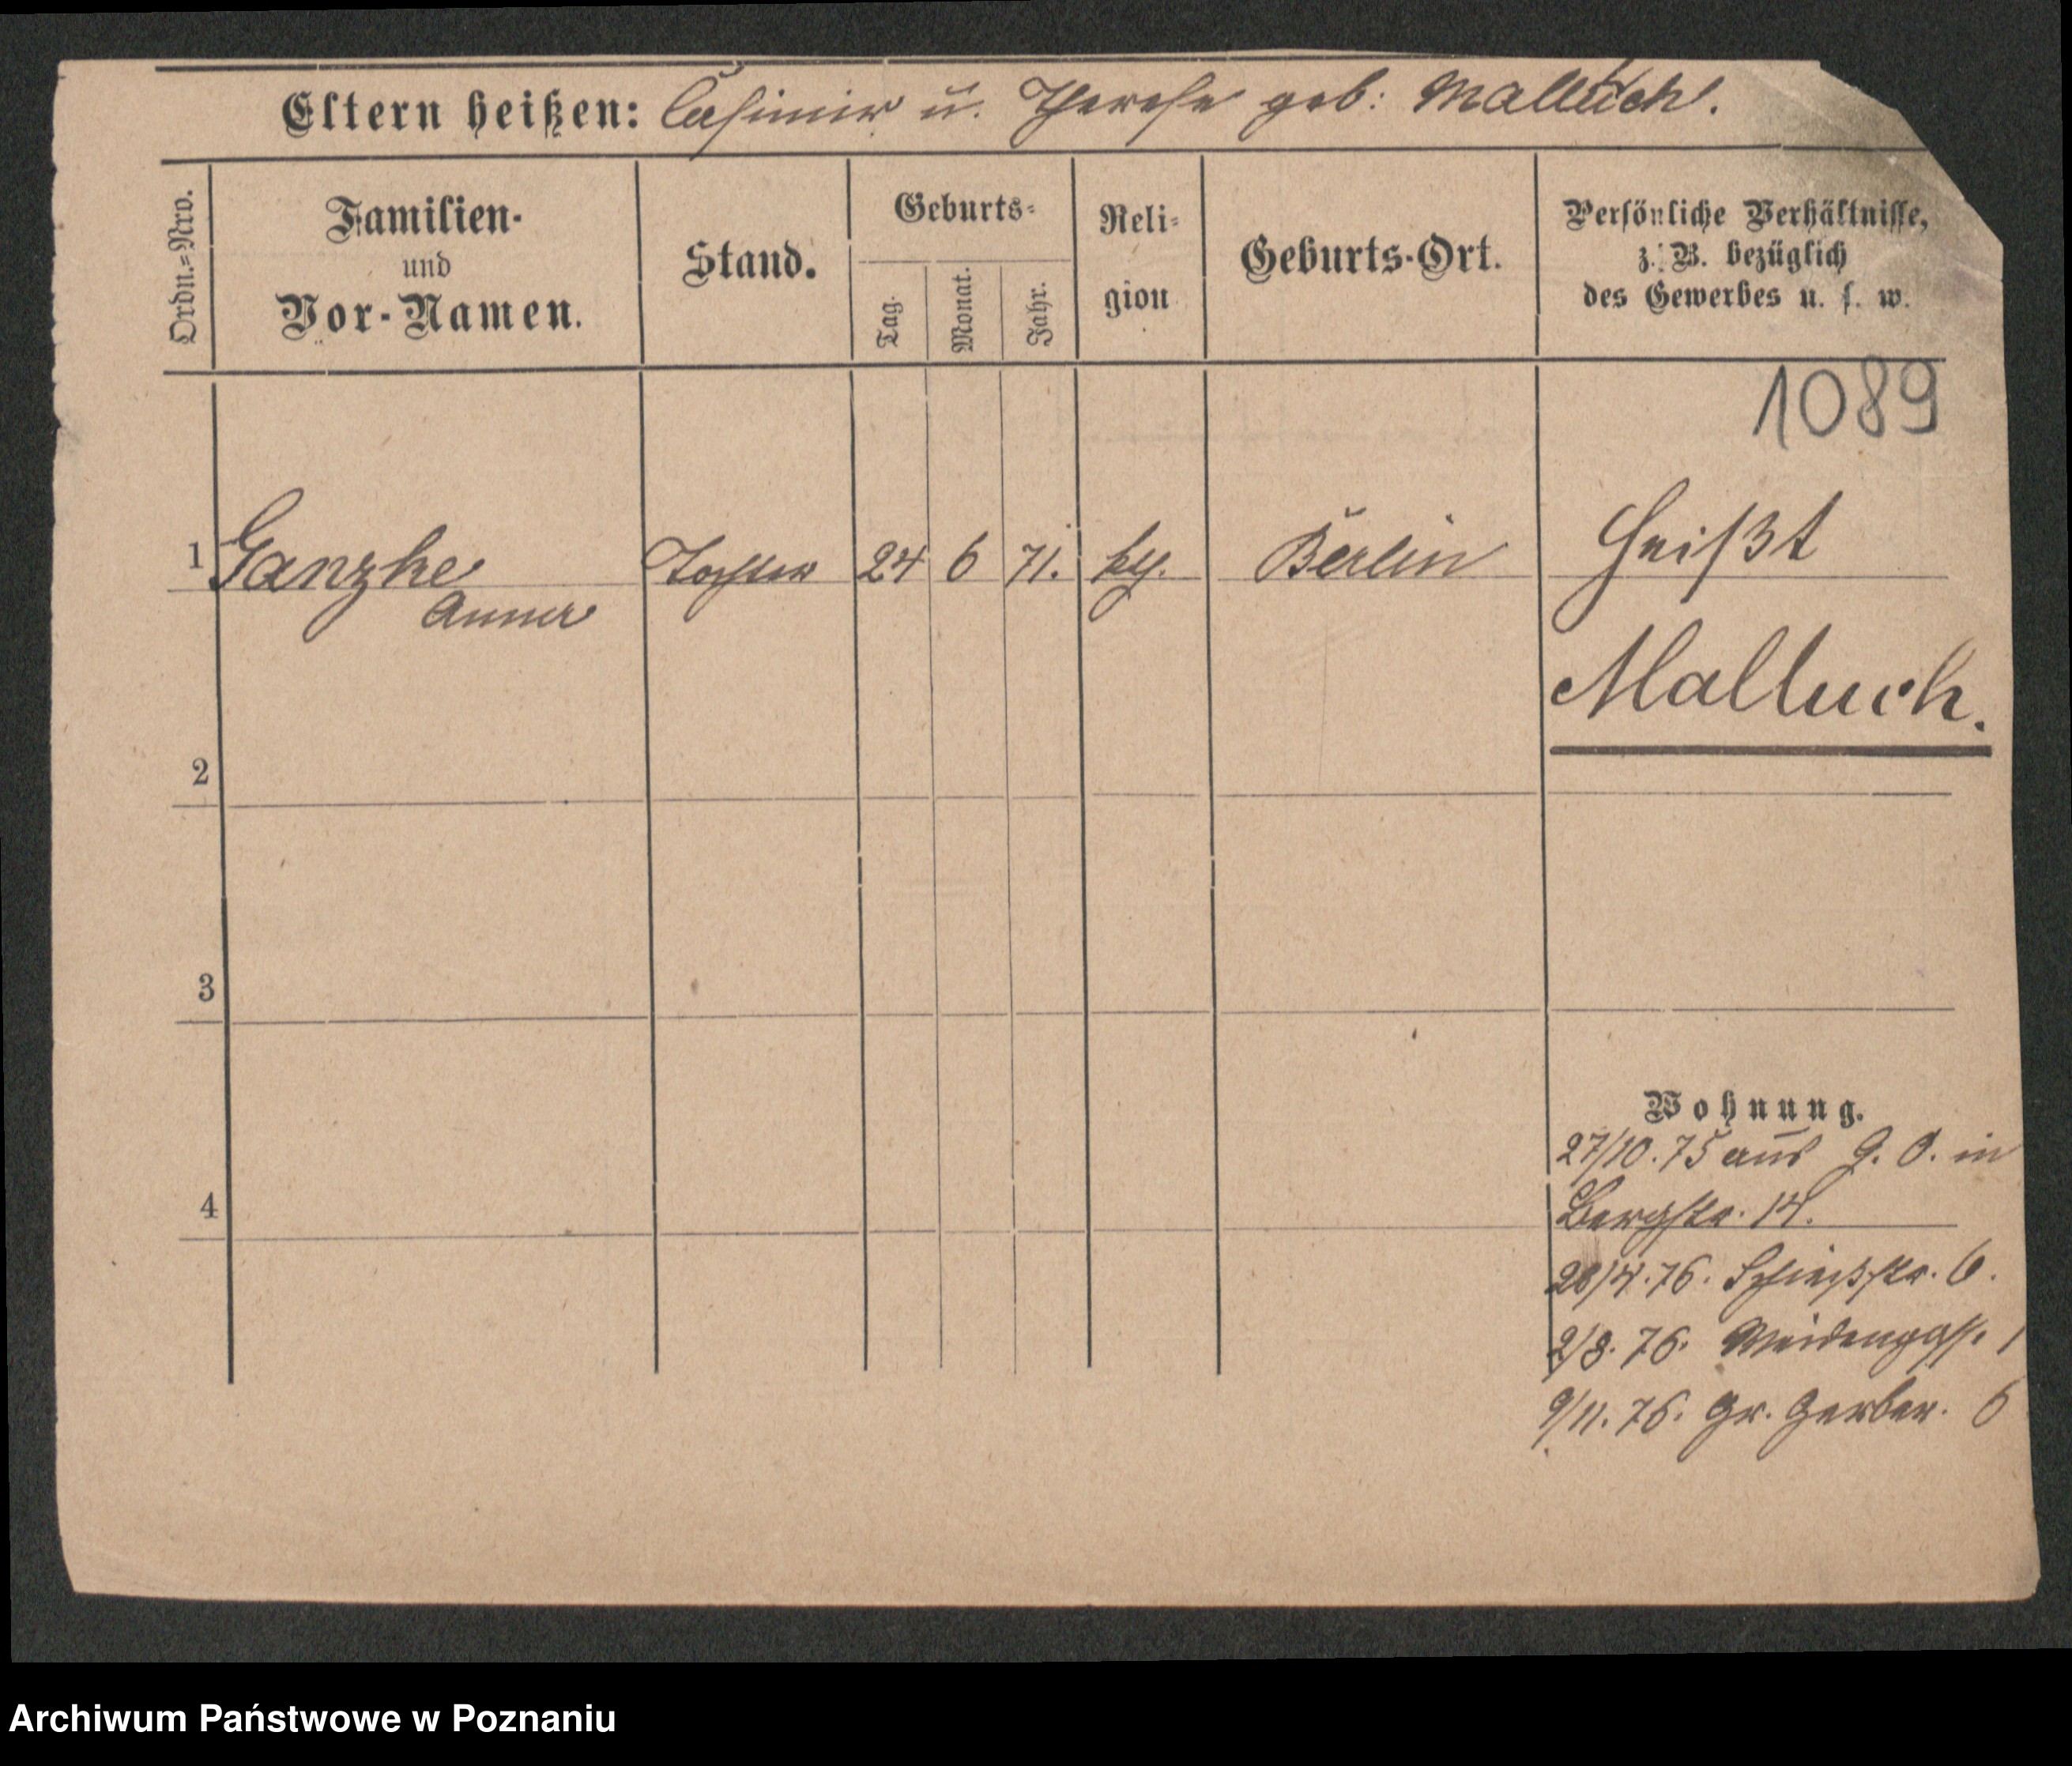 Eltern heißen: Casimir u. Therese geb: Malluch.
Ordn.=Nro.
Familien-
und
Vor-Namen.
Stand.
Geburts=
Tag.
Monat.
Jahr.
Reli=
gion
Geburts-Ort.
Persönliche Verhältnisse,
z. B. bezüglich
des Gewerbes u. s. w.
1089
1 Ganzke Tochter 24 6 71. kth. Berlin Heißt
Anna
Malluch.
2
3
4
Wohnung.
27/10. 75 aus G. O. in
Bergstr. 14.
28/4. 76. Schießstr. 6.
2/8. 76. Weidengass. 1
9/11. 76. Gr. Gerber. 6
Archiwum Państwowe w Poznaniu